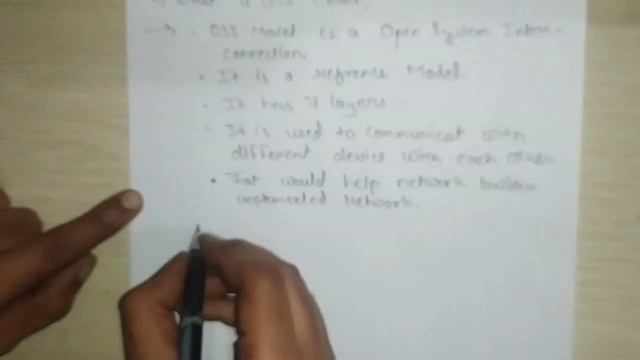 what is OSI Model.
→ • OSI Model is a Open System Inter-
connection
• It is a reference Model.
• It has 7 layers
• It is used to communicat with
different device with each other
• That would help network builders
implemented Network.